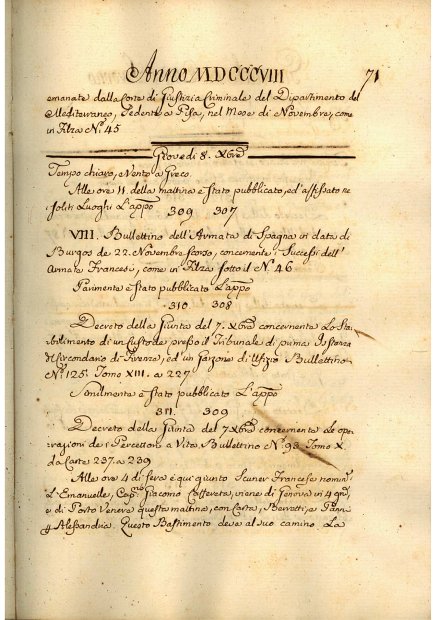 Anno MDCCCVIII 71
emanate dalla Corte di Giustizia Criminale del Dipartimento del
Mediterraneo, Sedente a Pisa, nel Mese di Novembre, come
in Filza N.º 45
Giovedì 8. Xbre
Tempo chiaro, e Vento a Greco.
Alle ore 11 della mattina è stato pubblicato, ed affissato ne
soliti Luoghi L'appo
309 307
VIII. Bullettino dell'Armata di Spagna in data di
Burgos de 22. Novembre scorso, concernente i Successi dell'
Armata Francese, come in Filza sotto il N.º 46
Parimente è stato pubblicato L'appo
310 308
Decreto della Giunta del 7. Xbre concernente Lo Sta-
bilimento di un Custode presso il Tribunale di prima Istanza
del Circondario di Firenze, ed un Garzone di Ufizio Bullettino
N.º 125. Tomo XIII. a 227
Similmente è stato pubblicato L'appo
311. 309
Decreto della Giunta del 7 Xbre concernente Le ope-
razioni de Percettori a Vita Bullettino N.º 98. Tomo X.
da Carte 237. a 239
Alle ore 4 di sera è qui giunto Scuner Francese nomin.
L'Emanuelle, Cap.no Giacomo Caffereta, viene di Genova in 4 gni,
e di Porto Venere questa mattina, con Carta, Berretti, e Panni
p Alessandria. Questo Bastimento deve al suo camino. La